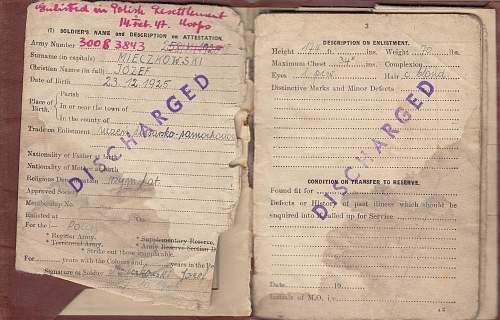 Enlisted in Polish Resettlement
14 Feb. 47. Corps
(1) SOLDIER'S NAME and DESCRIPTION on ATTESTATION.
Army Number 30083843
Surname (in capitals) MIECZKOWSKI
Christian Names (in full) JÓZEF
Date of Birth 23.12.1925
Place of Birth.
Parish
In or near the town of
In the county of
Trade on Enlistment
Nationality of Father at birth
Nationality of Mother at birth
Religious Denomination
Approved Society
Membership No.
Enlisted at On
For the
* Regular Army. * Supplementary Reserve.
* Territorial Army. * Army Reserve Section D
* Strike out those inapplicable.
For years with the Colours and years in the
Signature of Soldier
DISCHARGED
3
DESCRIPTION ON ENLISTMENT.
Height ft. Weight 70
Maximum Chest 34" ins. Complexion
Eyes Hair c. blond.
Distinctive Marks and Minor Defects
CONDITION ON TRANSFER TO RESERVE.
Found fit for
Defects or History of past illness which should be
enquired into if called up for Service
Date 19
Initials of M.O. i/c
DISCHARGED